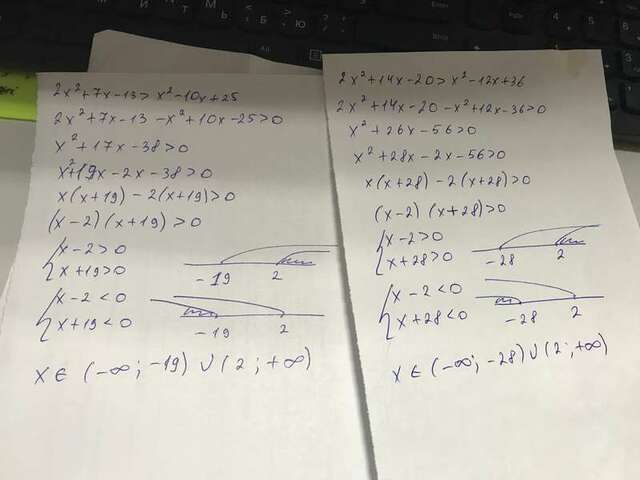 2x²+7x-13>x²-10x+25
2x²+7x-13-x²+10x-25>0
x²+17x-38>0
x²+19x-2x-38>0
x(x+19)-2(x+19)>0
(x-2)(x+19)>0
{x-2>0
{x+19>0
-19 2
{x-2<0
{x+19<0
-19 2
x∈(-∞;-19)∪(2;+∞)
2x²+14x-20>x²-12x+36
2x²+14x-20-x²+12x-36>0
x²+26x-56>0
x²+28x-2x-56>0
x(x+28)-2(x+28)>0
(x-2)(x+28)>0
{x-2>0
{x+28>0
-28 2
{x-2<0
{x+28<0
-28 2
x∈(-∞;-28)∪(2;+∞)